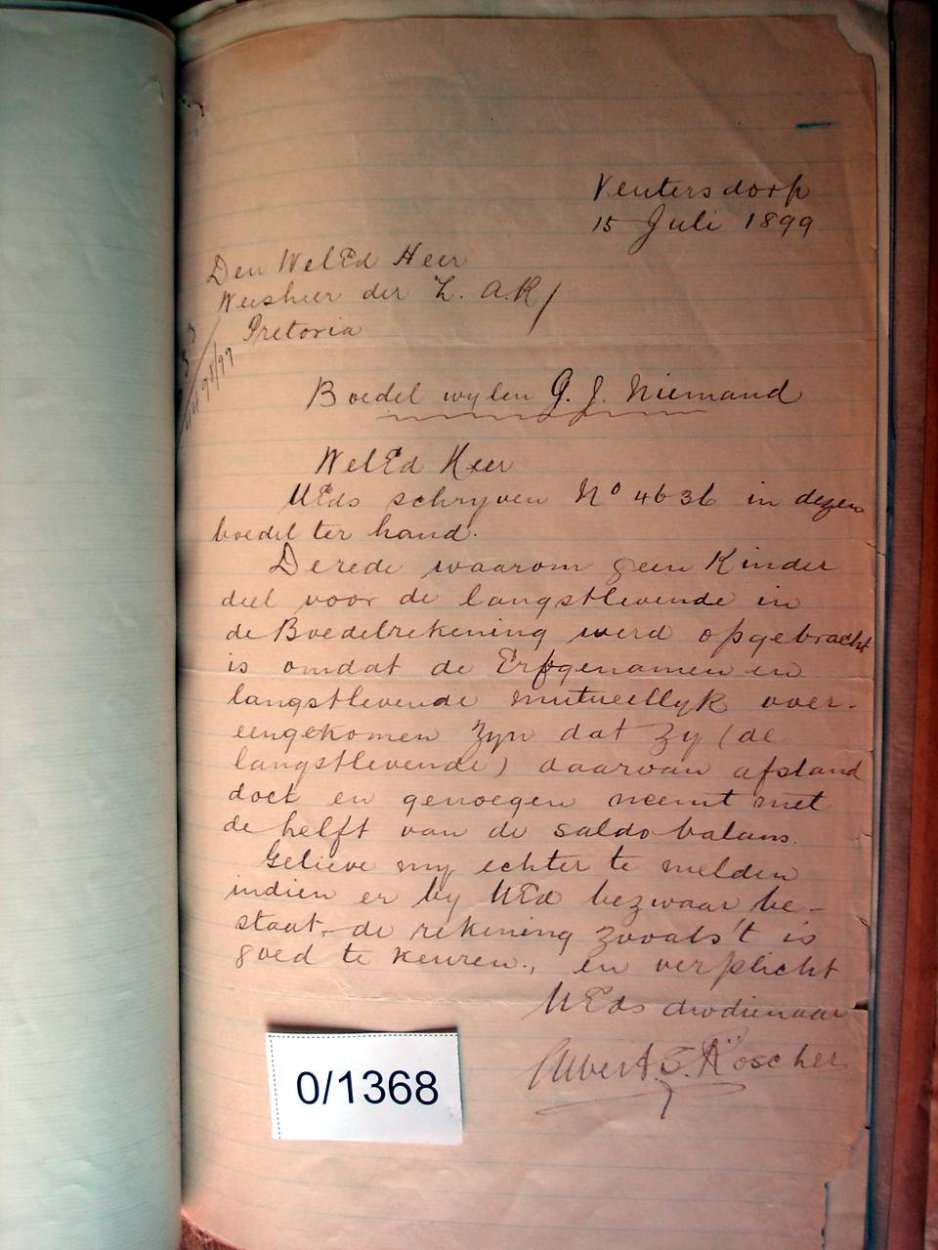 Ventersdorp
15 Juli 1899
Den WelEd Heer
Weesheer der Z. A. R/
Pretoria
98/99
Boedel wylen G. J. Niemand
WelEd Heer
UEds schryven No 4636 in dezen
boedel ter hand.
De rede waarom geen Kinder
deel voor de langstlevende in
de Boedelrekening werd opgebracht
is omdat de Erfgenamen en
langstlevende mutueellyk over-
eengekomen zyn dat zy (de
langstlevende) daarvan afstand
doet en genoegen neemt met
de helft van de saldo balans.
Gelieve my echter te melden
indien er by UEd bezwaar be-
staat de rekening zooals't is
goed te keuren., en verplicht
UEds dwdienaar
Albert S. Roscher
0/1368